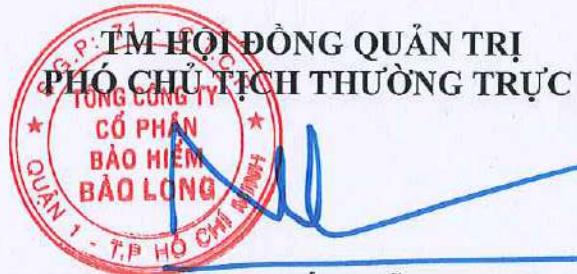 TM HỘI ĐỒNG QUẢN TRỊ
PHÓ CHỦ TỊCH THƯỜNG TRỰC
TỔNG CÔNG TY
CỔ PHẦN
BẢO HIỂM
BẢO LONG
QUẬN 1 - T.P HỒ CHÍ MINH